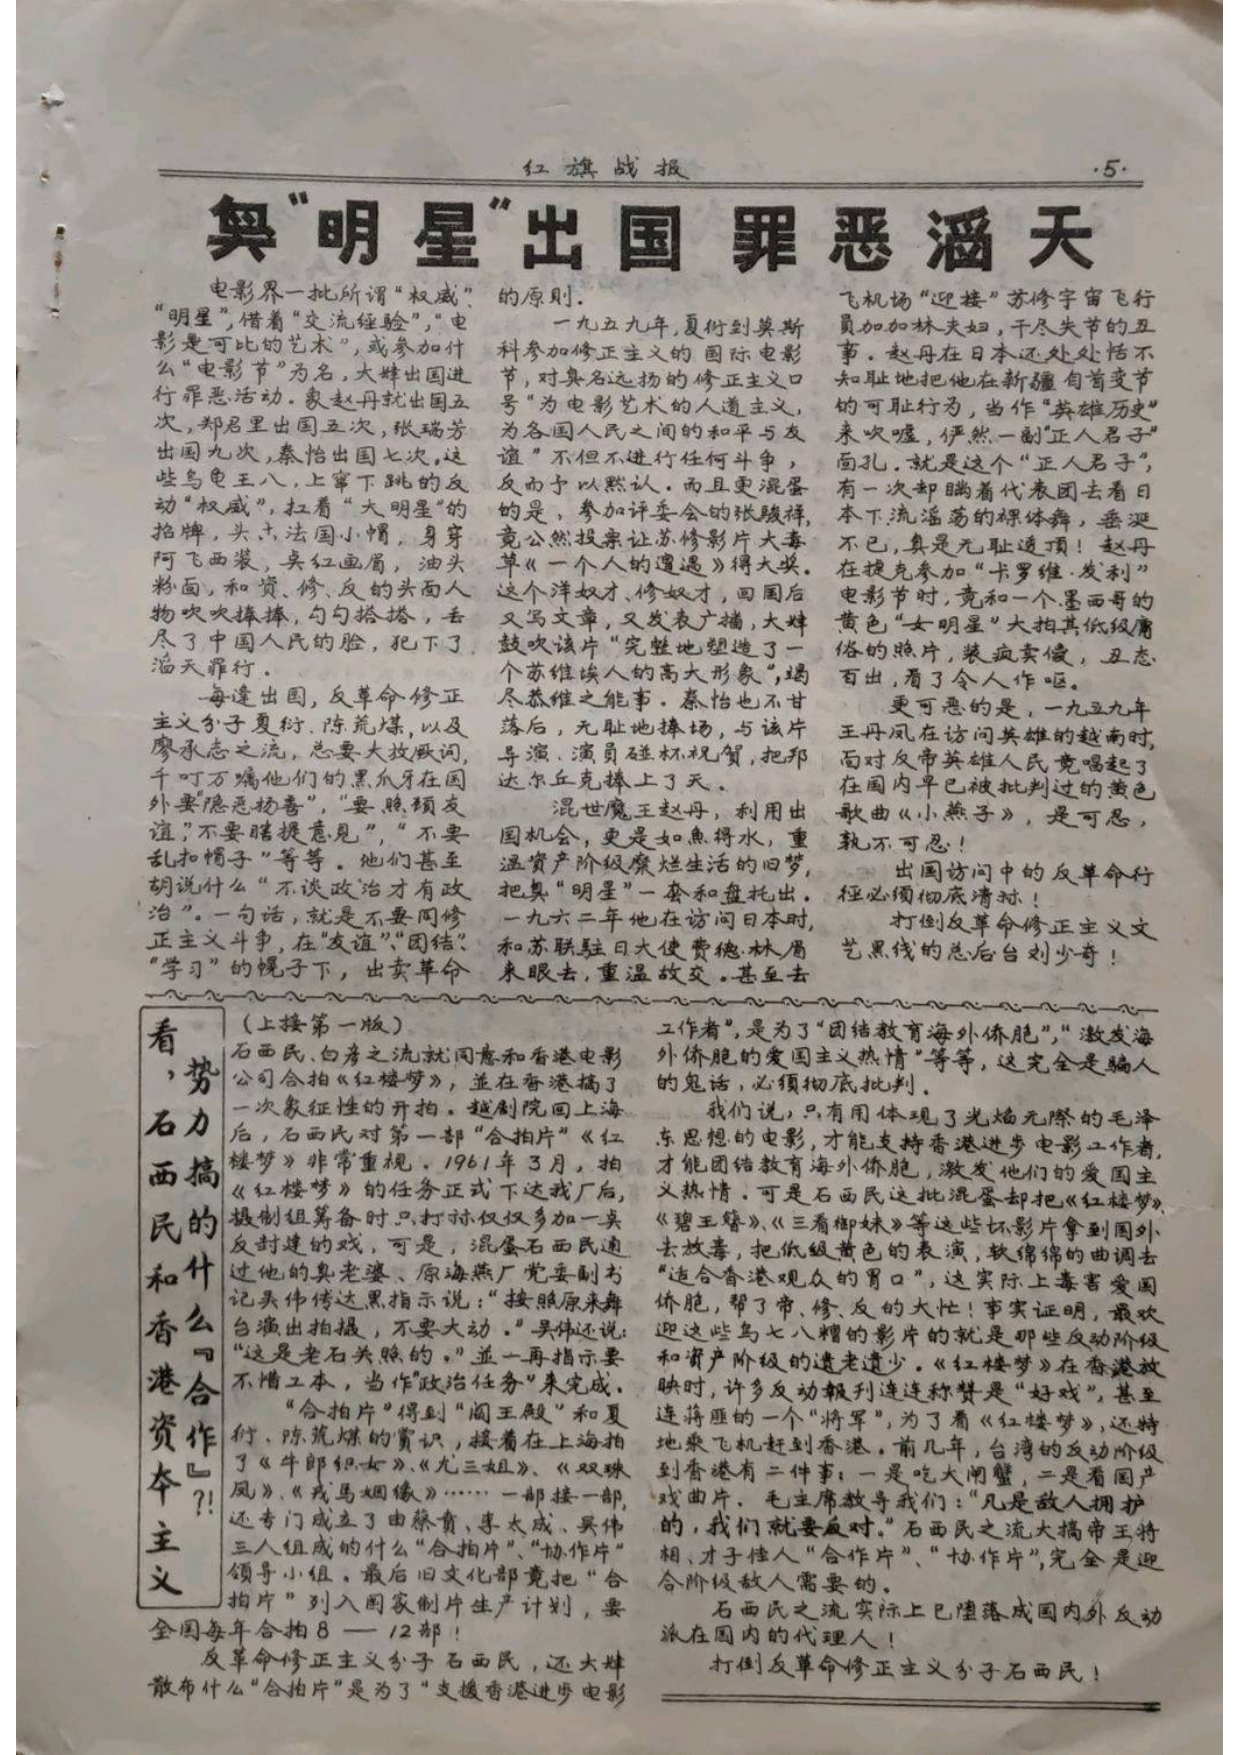 红旗战报
·5·
臭“明星”出国罪恶滔天
电影界一批所谓“权威”、
“明星”,借着“交流经验”,“电
影是可比的艺术”,或参加什
么“电影节”为名,大肆出国进
行罪恶活动。象赵丹就出国五
次,郑君里出国五次,张瑞芳
出国九次,秦怡出国七次。这
些乌龟王八,上窜下跳的反
动“权威”,扛着“大明星”的
招牌,头上法国小帽,身穿
阿飞西装,点红画眉,油头
粉面,和资、修、反的头面人
物吹吹捧捧,勾勾搭搭,丢
尽了中国人民的脸,犯下了
滔天罪行。
每逢出国,反革命修正
主义分子夏衍、陈荒煤,以及
廖承志之流,总要大放厥词,
千叮万嘱他们的黑爪牙在国
外要“隐恶扬善”,“要照顾友
谊”,“不要瞎提意见”,“不要
乱扣帽子”等等。他们甚至
胡说什么“不谈政治才有政
治”。一句话,就是不要同修
正主义斗争,在“友谊”、“团结”、
“学习”的幌子下,出卖革命
的原则.
一九五九年,夏衍到莫斯
科参加修正主义的国际电影
节,对臭名远扬的修正主义口
号“为电影艺术的人道主义,
为各国人民之间的和平与友
谊”不但不进行任何斗争,
反而予以默认。而且更混蛋
的是,参加评委会的张骏祥,
竟公然投票让苏修影片大毒
草《一个人的遭遇》得大奖.
这个洋奴才、修奴才,回国后
又写文章,又发表广播,大肆
鼓吹该片“完整地塑造了一
个苏维埃人的高大形象”,竭
尽恭维之能事。秦怡也不甘
落后,无耻地捧场,与该片
导演、演员碰杯祝贺,把邦
达尔丘克捧上了天。
混世魔王赵丹,利用出
国机会,更是如魚得水,重
温资产阶级糜烂生活的旧梦,
把臭“明星”一套和盘托出.
一九六二年他在访问日本时,
和苏联駐日大使费德林眉
来眼去,重温故交。甚至去
飞机场“迎接”苏修宇宙飞行
員加加林夫妇,干尽失节的丑
事。赵丹在日本还处处恬不
知耻地把他在新疆自首变节
的可耻行为,当作“英雄历史”
来吹嘘,俨然一副“正人君子”
面孔.就是这个“正人君子”,
有一次却瞒着代表团去看日
本下流淫荡的裸体舞,垂涎
不已,真是无耻透顶!赵丹
在捷克参加“卡罗维·发利”
电影节时,竟和一个墨西哥的
黄色“女明星”大拍其低级庸
俗的照片,装疯卖傻,丑态
百出,看了令人作呕。
更可恶的是,一九五九年
王丹凤在访问英雄的越南时,
面对反帝英雄人民竟唱起了
在国内早已被批判过的黄色
歌曲《小燕子》,是可忍,
孰不可忍!
出国访问中的反革命行
径必须彻底清祘!
打倒反革命修正主义文
艺黑线的总后台刘少奇!
看,石西民和香港资本主义
势力搞的什么『合作』?!
(上接第一版)
石西民、白彦之流就同意和香港电影
公司合拍《红楼梦》,並在香港搞了
一次象征性的开拍。越剧院回上海
后,石西民对第一部“合拍片”《红
楼梦》非常重视.1961年3月,拍
《红楼梦》的任务正式下达我厂后,
摄制组筹备时只打祘仅仅多加一点
反封建的戏,可是,混蛋石西民通
过他的臭老婆、原海燕厂党委副书
记吴伟传达黑指示说:“按照原来舞
台演出拍摄,不要大动。”吴伟还说:
“这是老石关照的。”並一再指示要
不惜工本,当作“政治任务”来完成.
“合拍片”得到“阎王殿”和夏
衍、陈荒煤的赏识,接着在上海拍
了《牛郎织女》、《尤三姐》、《双珠
凤》、《戎马姻缘》……一部接一部,
还专门成立了由蔡贲、李太成、吴伟
三人组成的什么“合拍片”、“协作片”
领导小组。最后旧文化部竟把“合
拍片”列入国家制片生产计划,要
全国每年合拍8—12部!
反革命修正主义分子石西民,还大肆
散布什么“合拍片”是为了“支援香港进步电影
工作者”,是为了“团结教育海外侨胞”,“激发海
外侨胞的爱国主义热情”等等,这完全是骗人
的鬼话,必须彻底批判.
我们说,只有用体现了光焰无際的毛泽
东思想的电影,才能支持香港进步电影工作者,
才能团结教育海外侨胞,激发他们的爱国主
义热情.可是石西民这批混蛋却把《红楼梦》、
《碧玉簪》、《三看御妹》等这些坏影片拿到国外
去放毒,把低级黄色的表演,软绵绵的曲调去
“适合香港观众的胃口”,这实际上毒害爱国
侨胞,帮了帝、修、反的大忙!事实证明,最欢
迎这些乌七八糟的影片的就是那些反动阶级
和资产阶级的遗老遗少。《红楼梦》在香港放
映时,许多反动報刊连连称赞是“好戏”,甚至
连蒋匪的一个“将军”,为了看《红楼梦》,还特
地乘飞机赶到香港。前几年,台湾的反动阶级
到香港有二件事:一是吃大闸蟹,二是看国产
戏曲片.毛主席教导我们:“凡是敌人拥护
的,我们就要反对。”石西民之流大搞帝王将
相、才子佳人“合作片”、“协作片”,完全是迎
合阶级敌人需要的。
石西民之流实际上已堕落成国内外反动
派在国内的代理人!
打倒反革命修正主义分子石西民!